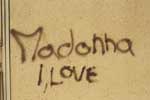 Madonna
I, LOVE